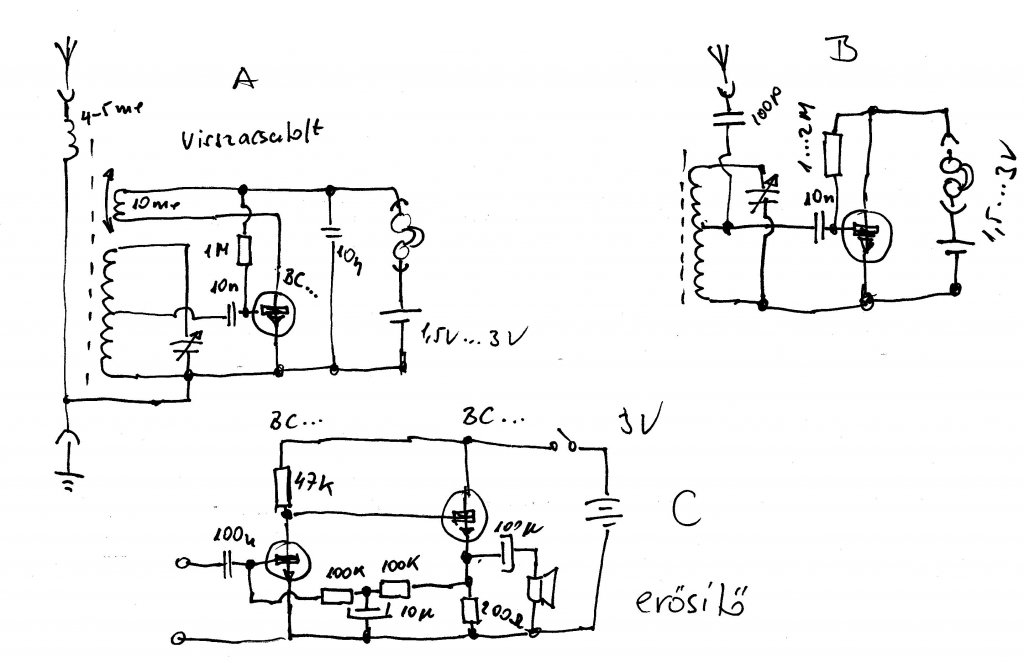 A
4-5me
Visszacsatolt
10me
1M
10n
BC...
10n
1,5V...3V
B
100p
1...2M
10n
1,5...3V
BC...
BC...
3V
47K
C
100n
100K
100K
10µ
100µ
200Ω
erősítő